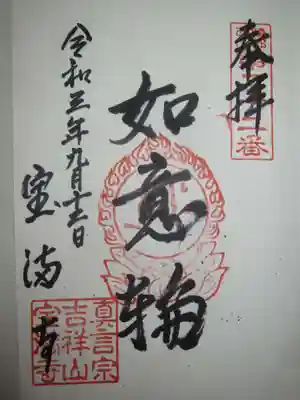 奉拝
如意輪
令和三年九月十二日
宝満寺
真言宗
吉祥山
宝満寺